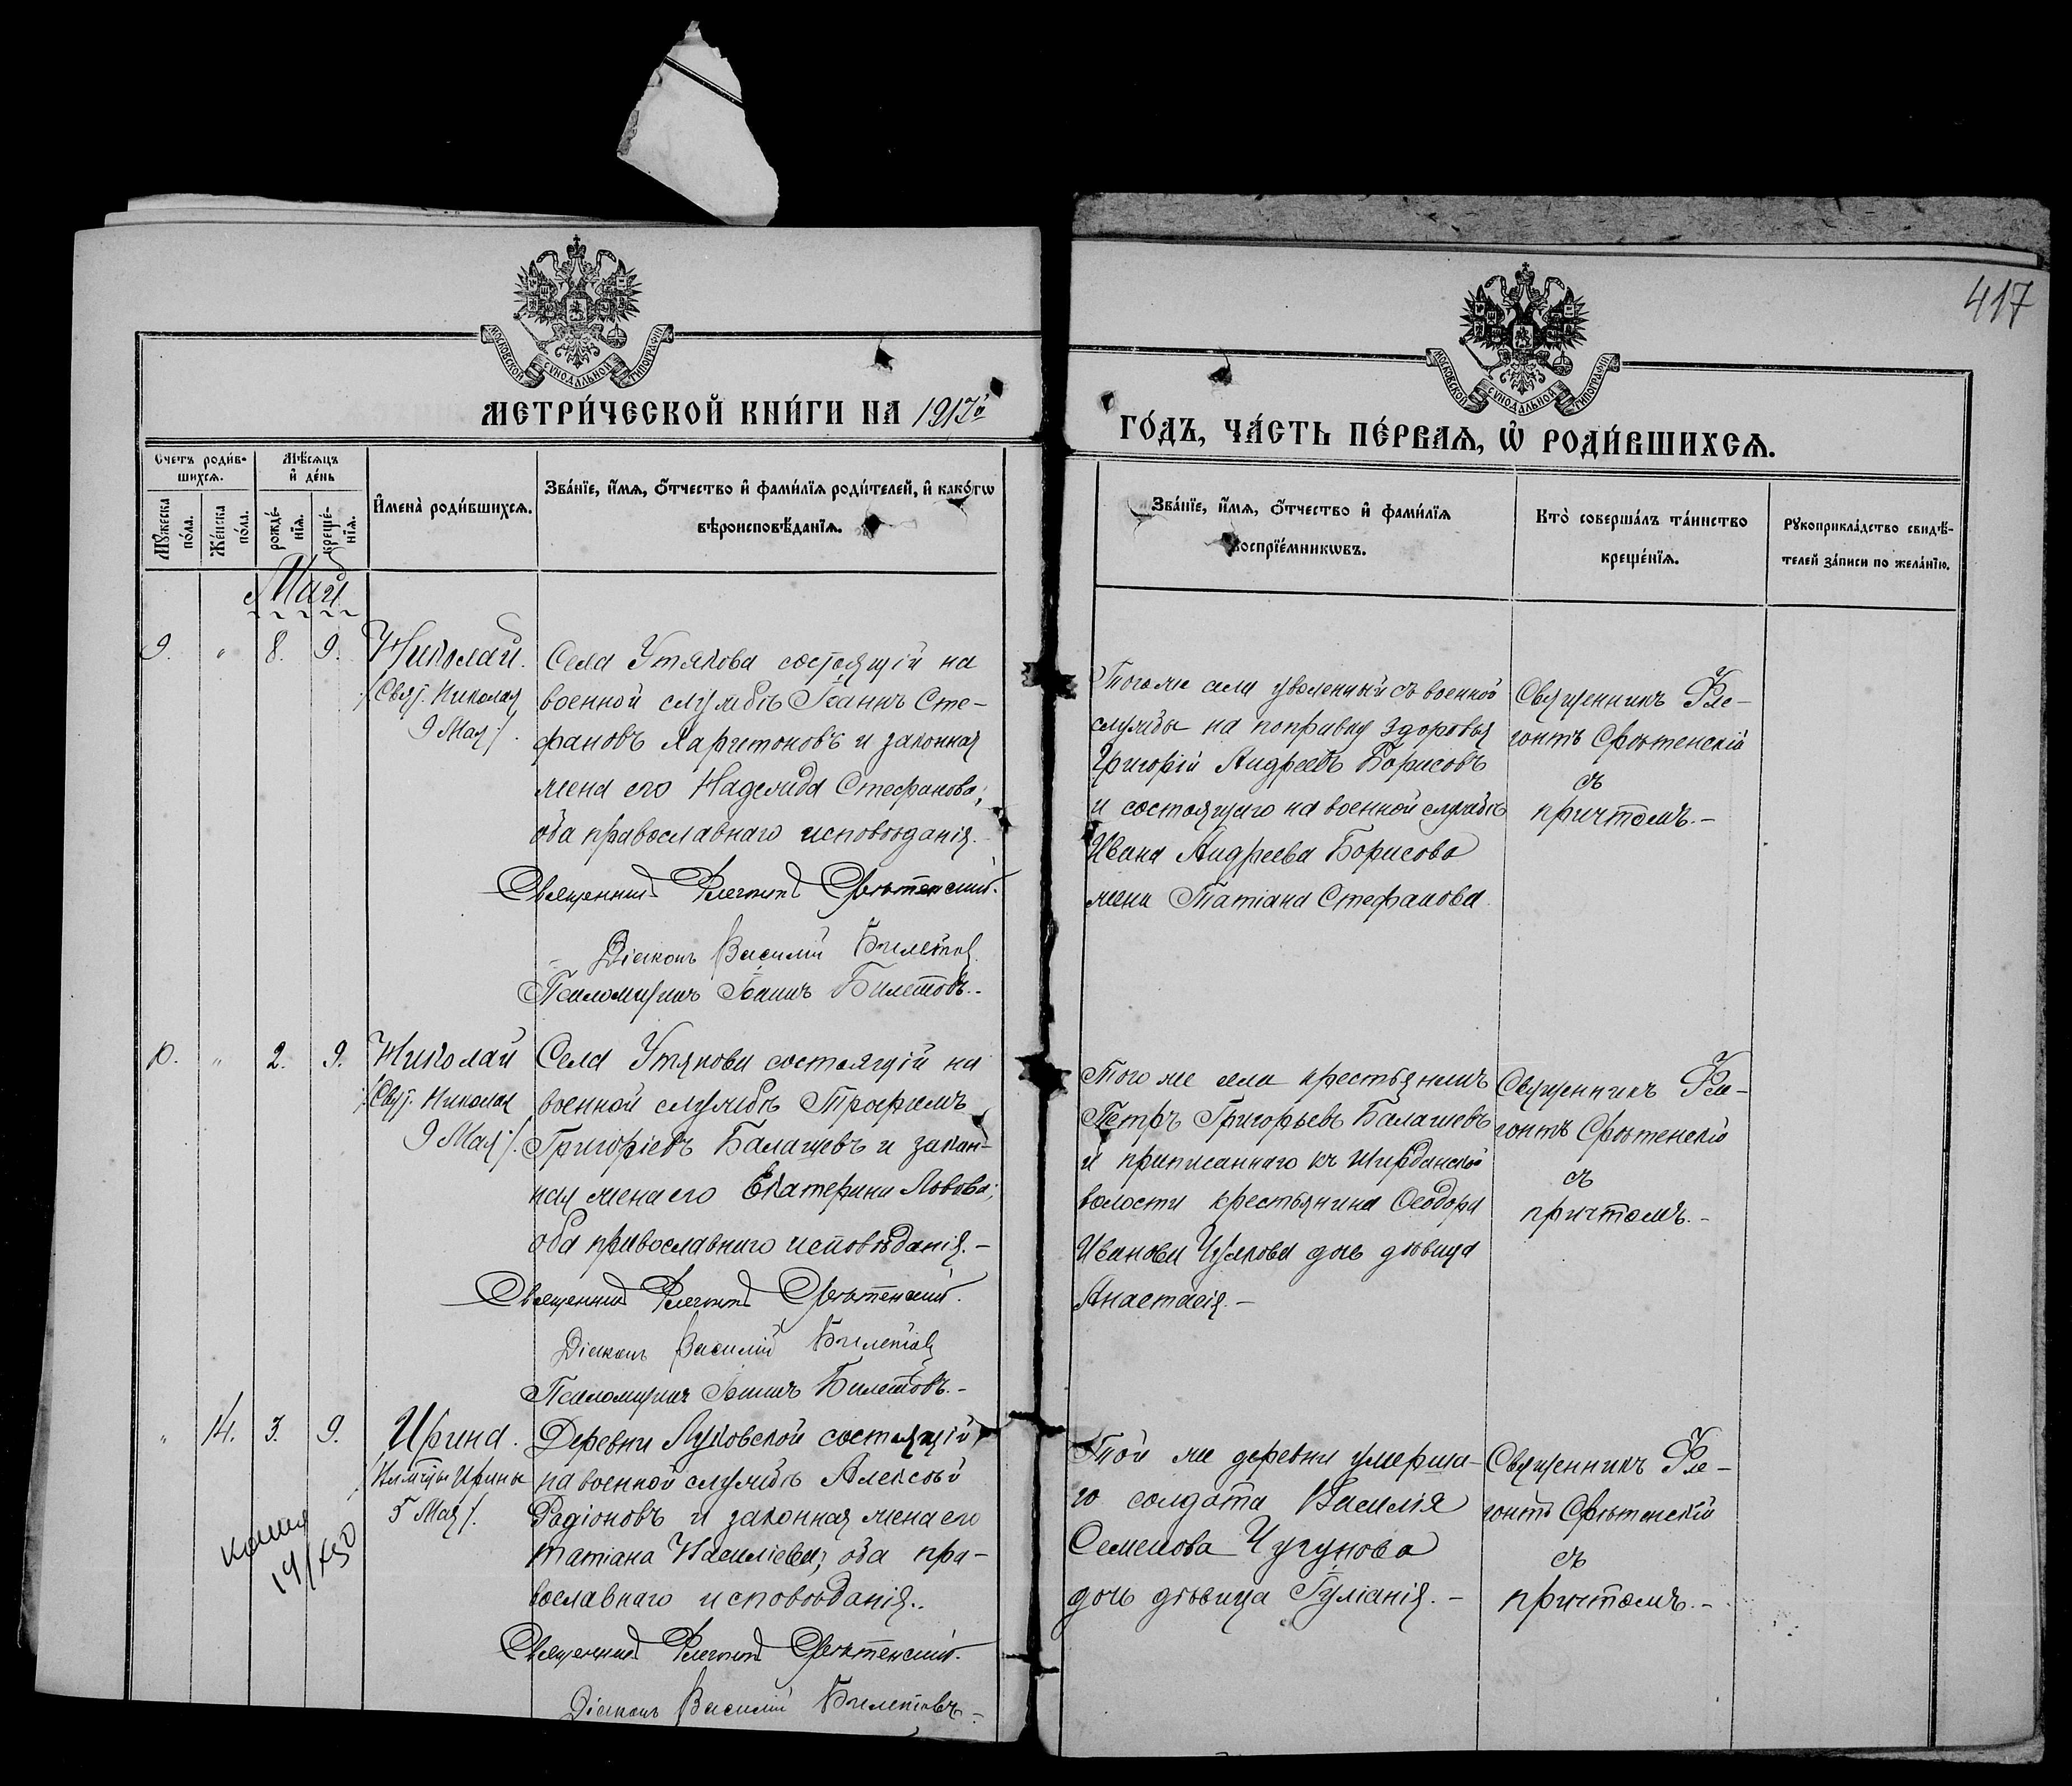 417
МОСКОВСКОЙ СѴНОДАЛЬНОЙ ТИПОГРАФІИ
МОСКОВСКОЙ СѴНОДАЛЬНОЙ ТИПОГРАФІИ
МЕТРИ́ЧЕСКОЙ КНИ́ГИ НА 1917й
ГО́ДЪ, ЧА́СТЬ ПЕ́РВАѦ, Ѡ РОДИ́ВШИХСѦ.
Счетъ роди́в-
шихсѧ.
Мꙋжеска
по́ла.
Же́нска
по́ла.
Мѣ́сѧцъ
и҆ де́нь
рожде́-
нїѧ.
креще́-
нїѧ.
И҆мена̀ роди́вшихсѧ.
Зва́нїе, и҆́мѧ, ѻ҆́тчество и҆ фами́лїѧ роди́телей, и҆ како́гѡ
вѣроисповѣ́данїѧ.
Зва́нїе, и҆́мѧ, ѻ҆́тчество и҆ фами́лїѧ
воспрїе́мникѡвъ.
Кто̀ соверша́лъ та́инство
креще́нїѧ.
Рꙋкоприкла́дство свидѣ́-
телей за́писи по жела́нїю.
Май
9. " 8. 9. Николай.
/Свят. Николая
9 Мая/.
Села Утякова состоящій на
военной службѣ Іоаннъ Сте-
фановъ Харитоновъ и законная
жена его Надежда Стефанова;
оба православнаго исповѣданія.
Священникъ Флегонтъ Срѣтенскій.
Діаконъ Василій Билетовъ
Псаломщикъ Іоаннъ Билетовъ.-
Того же села уволенный съ военной
службы на поправку здоровья
Григорій Андреевъ Борисовъ
и состоящаго на военной службѣ
Ивана Андреева Борисова
жена Татіана Стефанова
Священникъ Фле-
гонтъ Срѣтенскій
съ
причтомъ.-
10. " 2. 9. Николай
/Свят. Николая
9 Мая/.
Села Утякова состоящій на
военной службѣ Трофимъ
Григоріевъ Балашевъ и закон-
ная жена его Екатерина Львова;
оба православнаго исповѣданія.-
Священникъ Флегонтъ Срѣтенскій.
Діаконъ Василій Билетовъ
Псаломщикъ Іоаннъ Билетовъ.-
Того же села крестьянинъ
Петръ Григорьевъ Балашевъ
и приписаннаго къ Ширданской
волости крестьянина Ѳеодора
Иванова дочь дѣвица
Анастасія.-
Священникъ Фле-
гонтъ Срѣтенскій
съ
причтомъ.-
" 14. 3. 9. Ирина.
Ирины
5 Мая/.
копия
Деревни состоящій
на военной службѣ Алексѣй
Радіоновъ и законная жена его
Татіана Василіева; оба пра-
вославнаго исповѣданія.
Священникъ Флегонтъ Срѣтенскій.
Діаконъ Василій Билетовъ.-
Той же деревни умерша-
го солдата Василія
Семенова Чугунова
дочь дѣвица Іуліанія.-
Священникъ Фле-
гонтъ Срѣтенскій
съ
причтомъ.-